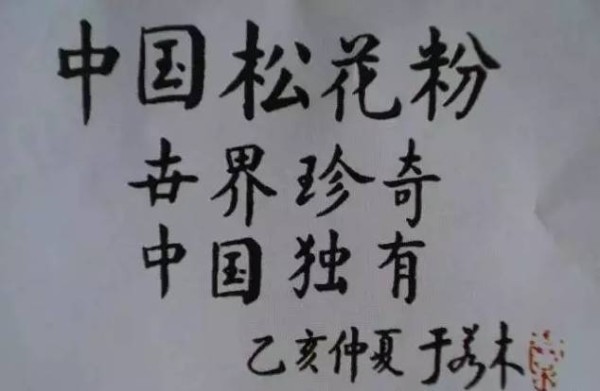 中国松花粉
世界珍奇
中国独有
乙亥仲夏 于若木